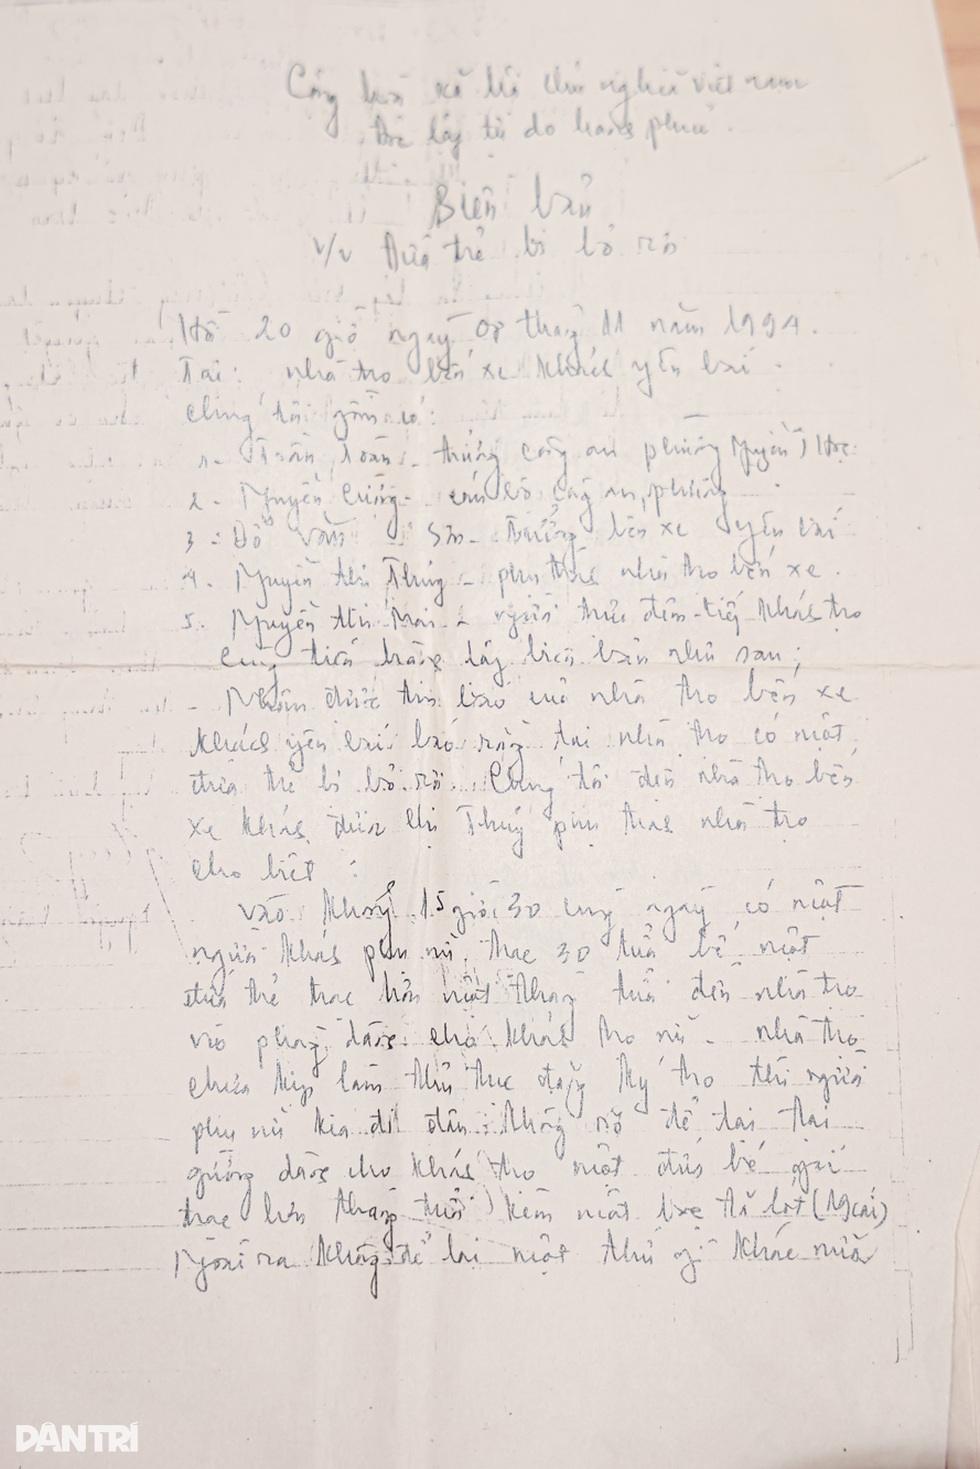 Cộng hòa xã hội chủ nghĩa việt nam
Độc lập tự do hạnh phúc.
Biên bản
v/v đứa trẻ bị bỏ rơi
Hồi 20 giờ ngày 08 tháng 11 năm 1994.
Tại: nhà trọ bến xe khách yên bái
chúng tôi gồm có:
1- Trần Toàn - trưởng công an phường Nguyễn T Học
2- Nguyễn Cường - cán bộ công an phường
3- Đỗ Văn Sơn - Trưởng bến xe yên bái
4- Nguyễn thị Thúy - phụ trách nhà trọ bến xe.
5- Nguyễn thị Mai - người trực đón tiếp khách trọ
cùng tiến hành lập biên bản như sau;
- Nhận được tin báo của nhà trọ bến xe
khách yên bái báo rằng tại nhà trọ có một
đứa trẻ bị bỏ rơi. Chúng tôi đến nhà trọ bến
xe khách được chị Thúy phụ trách nhà trọ
cho biết:
vào khoảng 15 giờ 30 cùng ngày có một
người khách phụ nữ trạc 30 tuổi bế một
đứa trẻ trạc hơn một tháng tuổi đến nhà trọ
vào phòng dành cho khách trọ nữ - nhà trọ
chưa kịp làm thủ tục đăng ký trọ thì người
phụ nữ kia đi đâu không rõ để lại tại
giường dành cho khách trọ một đứa bé gái
trạc hơn tháng tuổi kèm một bọc tã lót (19 cái)
Ngoài ra không để lại một thứ gì khác nữa
DÂN TRÍ